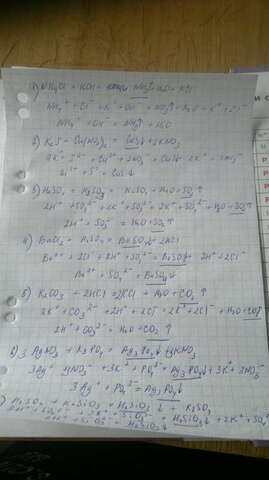 1) NH₄Cl + KOH = NH₃↑ + H₂O + KCl
NH₄⁺ + Cl⁻ + K⁺ + OH⁻ = NH₃↑ + H₂O + K⁺ + Cl⁻
NH₄⁺ + OH⁻ = NH₃↑ + H₂O
2) K₂S + Cu(NO₃)₂ = CuS↓ + 2KNO₃
2K⁺ + S²⁻ + Cu²⁺ + 2NO₃⁻ = CuS↓ + 2K⁺ + 2NO₃⁻
Cu²⁺ + S²⁻ = CuS↓
3) H₂SO₄ + K₂SO₃ = K₂SO₄ + H₂O + SO₂↑
2H⁺ + SO₄²⁻ + 2K⁺ + SO₃²⁻ = 2K⁺ + SO₄²⁻ + H₂O + SO₂↑
2H⁺ + SO₃²⁻ = H₂O + SO₂↑
4) BaCl₂ + H₂SO₄ = BaSO₄↓ + 2HCl
Ba²⁺ + 2Cl⁻ + 2H⁺ + SO₄²⁻ = BaSO₄↓ + 2H⁺ + 2Cl⁻
Ba²⁺ + SO₄²⁻ = BaSO₄↓
5) K₂CO₃ + 2HCl = 2KCl + H₂O + CO₂↑
2K⁺ + CO₃²⁻ + 2H⁺ + 2Cl⁻ = 2K⁺ + 2Cl⁻ + H₂O + CO₂↑
2H⁺ + CO₃²⁻ = H₂O + CO₂↑
6) 3AgNO₃ + K₃PO₄ = Ag₃PO₄↓ + 3KNO₃
3Ag⁺ + 3NO₃⁻ + 3K⁺ + PO₄³⁻ = Ag₃PO₄↓ + 3K⁺ + 3NO₃⁻
3Ag⁺ + PO₄³⁻ = Ag₃PO₄↓
7) H₂SO₄ + K₂SiO₃ = H₂SiO₃↓ + K₂SO₄
2H⁺ + SO₄²⁻ + 2K⁺ + SiO₃²⁻ = H₂SiO₃↓ + 2K⁺ + SO₄²⁻
2H⁺ + SiO₃²⁻ = H₂SiO₃↓